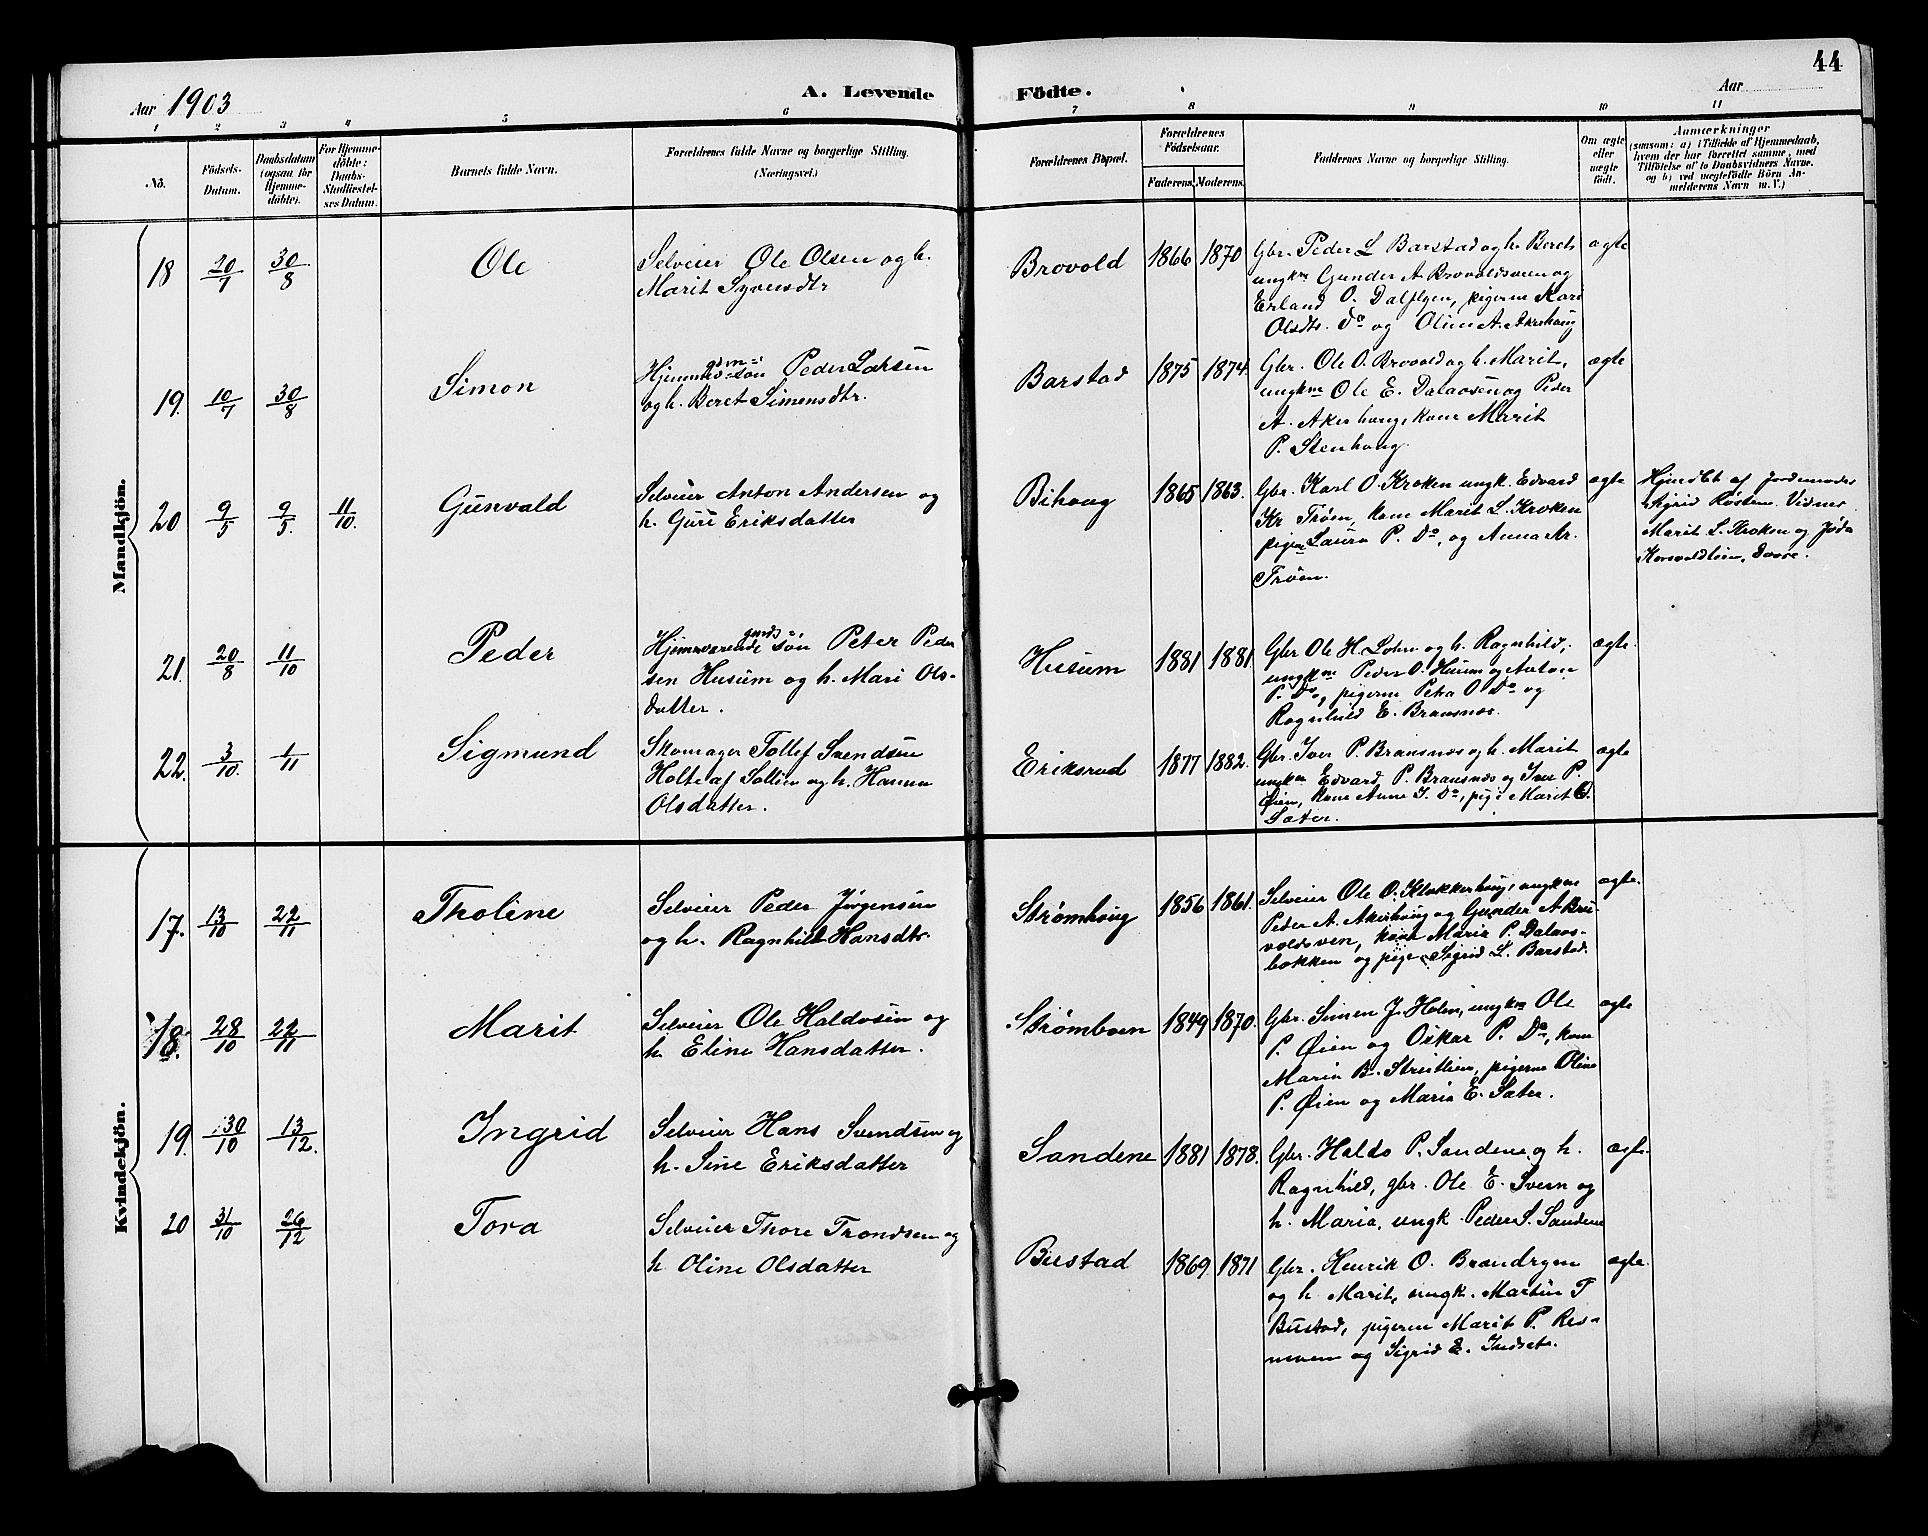 44
Aar 1903
A. Levende Födte.
Aar
1 2 3 4 5 6 7 8 9 10 11
No.
Födsels-
Datum.
Daabsdatum
(ogsaa for
Hjemme-
döbte).
For Hjemme-
döbte:
Daabs-
Stadfæstel-
ses Datum.
Barnets fulde Navn.
Forældrenes fulde Navne og borgerlige Stilling.
(Næringsvei.)
Forældrenes Bopæl.
Forældrenes
Födselsaar.
Faderens. Moderens.
Faddernes Navne og borgerlige Stilling.
Om ægte
eller
uægte
födt.
Anmærkninger
(saasom: a) i Tilfælde af Hjemmedaab,
hvem der har forrettet samme, med
Tilföielse af to Daabsvidners Navne,
og b) ved uægtefödte Börn An-
melderens Navn m. V.)
Mandkjön.
18 20/7 30/8
Ole
Selveier Ole Olsen og h.
Marit Syversdtr
Brovold
1866 1870
Gbr. Peder L Barstad og h. Beret
ungkm Gunder A. Brovoldsveen og
Erland O. Dalflyen, pigerne Kari
Olsdtr. Do og Oline A. Akerhaug
ægte
19. 10/7 30/8
Simon
Hjemmev. søn Peder Larsen
og h. Beret Simensdtr.
Barstad
1875 1874
Gbr. Ole O. Brovold og h. Marit,
ungkm Ole E. Dalaasen og Peder
A. Akerhaug, kone Marit
P. Stenhaug.
ægte
20 9/5 9/5. 11/10.
Gunvald
Selveier Anton Andersen og
h. Guri Eriksdatter
Bihaug
1865 1863.
Gbr. Karl O. Kroken ungk. Edvard
Kr Trøen, kone Marit L. Kroken
pigen Laura P. Do, og Anna Ar.
Trøen.
ægte
Hjmdbt af Jordemoder
Sigrid Røsten. Vidner
Marit L. Kroken og
21. 20/8 11/10
Peder
Hjemmværende gaards søn Peter Peder
sen Husum og h. Mari Ols-
datter.
Husum
1881 1881.
Gbr Ole H. Lohn og h. Ragnhild,
ungkm Peder O. Husum og Anton
P. Do, pigerne Petra O Do og
Ragnhild E. Bransnæs.
ægte.
22. 3/10. 1/11
Sigmund
Skomager Tollef Svendsen
Holte af Sollien og h. Hanna
Olsdatter.
Eriksrud
1877 1882.
Gbr. Iver P. Bransnæs og h. Marit
ungkm Edvard P. Bransnæs og Iver P.
Øien, kone Anne I. Do, pige Marit O.
Sæter.
ægte
Kvindekjön.
17. 13/10 22/11
Tholine
Selveier Peder Jørgensen
og h. Ragnhild Hansdtr.
Strømhaug
1856 1861.
Selveier Ole O. Klokkerhaug, ungkm
Peder A. Akerhaug og Gunder A Bro-
voldsven, kone Marie P. Dalaas-
bakken og pige Sigrid L. Barstad.
ægte.
18. 28/10 22/11
Marit
Selveier Ole Haldosen og
h. Eline Hansdatter.
Strømboen
1849 1870.
Gbr. Simen J. Holen, ungkm Ole
P. Øien og Oskar P. Do, kone
Maria B. Streitlien, pigerne Oline
P. Øien og Maria E. Sæter.
ægte
19. 30/10 13/12.
Ingrid
Selveier Hans Svendsen og
h. Sine Eriksdatter
Sandene
1881 1878.
Gbr. Haldo P. Sandene og h.
Ragnhild, gbr. Ole E. Sveen og
h. Maria, ungk. Peder S. Sandene
ægte.
20 31/10 26/12
Tora
Selveier Thore Trondsen og
h Oline Olsdatter
Bustad
1869 1871
Gbr. Henrik O. Brandryen
og h Marit, ungk. Martin T
Bustad, pigerne Marit P. Ros-
moen og Sigrid E. Indset.
ægte.